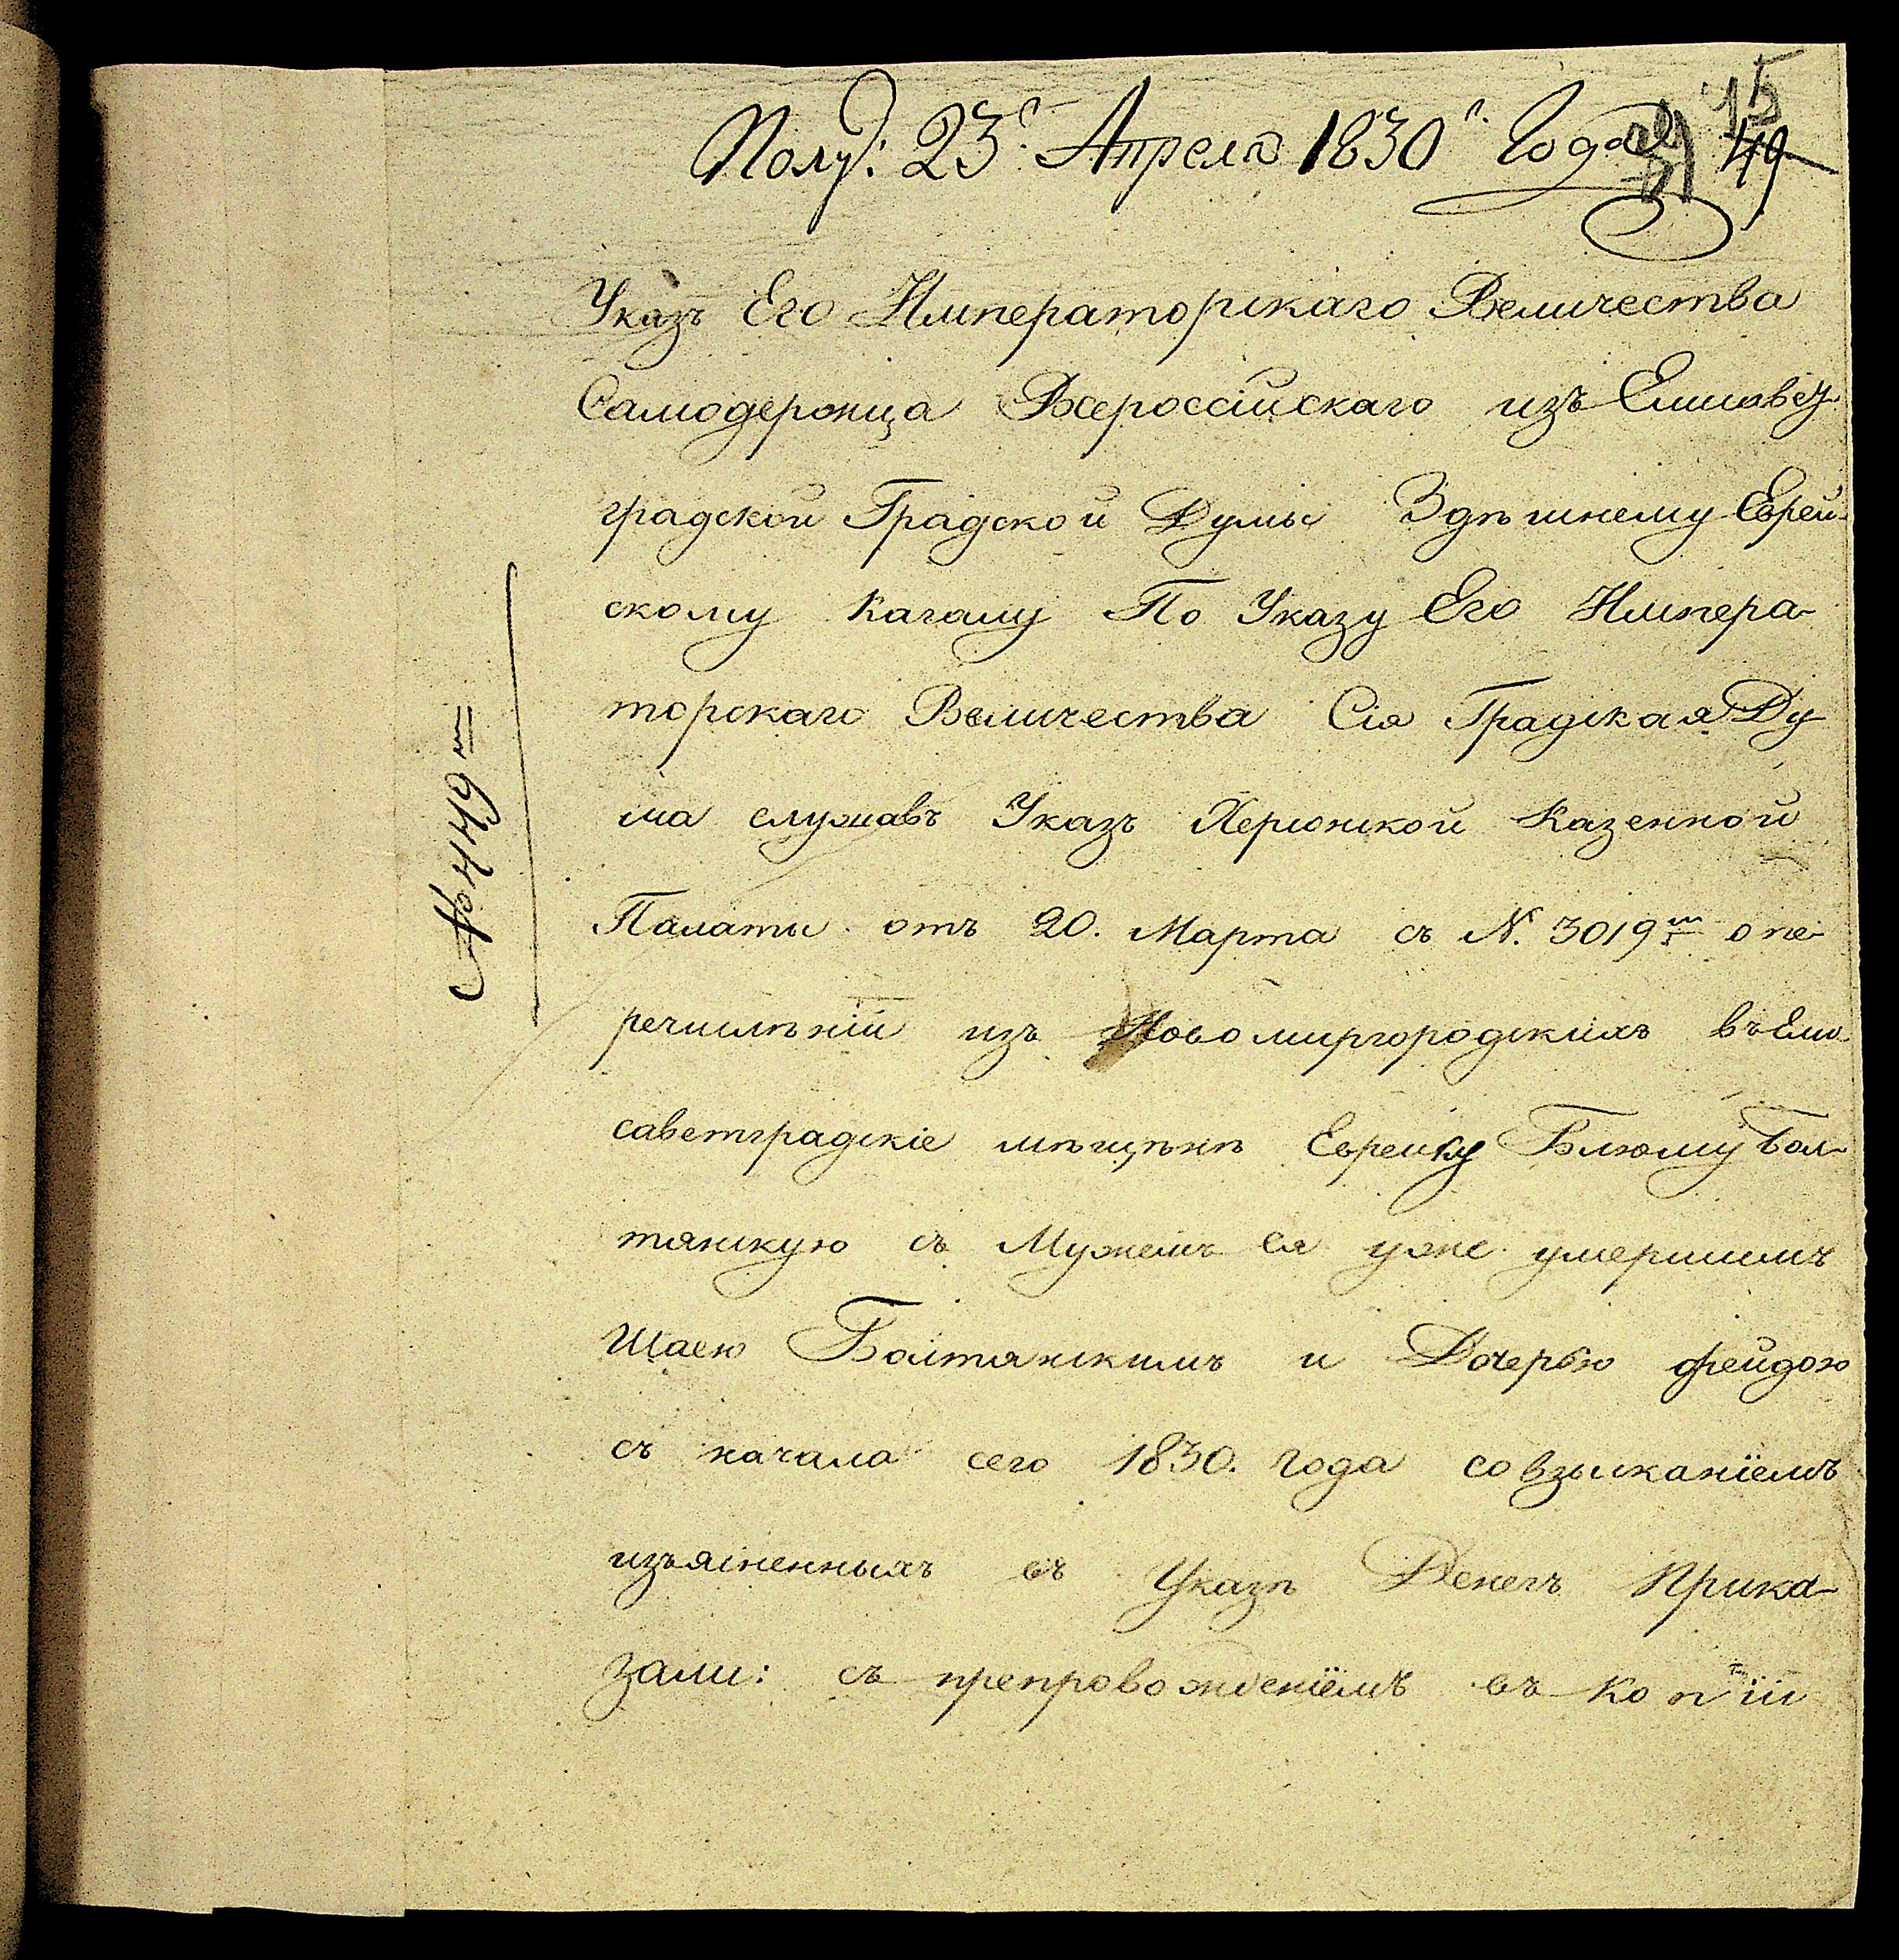 Полу: 23г. Апреля 1830г. Года
15
49
Указъ Его Императорскаго Величества
Самодержца Всероссійскаго изъ Елисавет-
градской Градской Думы Здѣшнему Еврей-
скому Кагалу По Указу Его Импера-
торскаго Величества Сія Градская Ду-
ма слушавъ Указъ Херсонской Казенной
Палаты отъ 20. Марта съ N. 3019м о пе-
речислѣніи изъ Новомиргородскихъ въ Ели-
саветградскіе мѣщѣнѣ Еврейку Блюму Бол-
тянскую съ Мужемъ ея уже умершимъ
Шаею Болтянскимъ и Дочерью фейдою
съ начала сего 1830. года со взысканіемъ
изъясненныхъ въ Указѣ Денегъ Прика-
зали: съ препровожденіемъ въ копіи
№ 449м